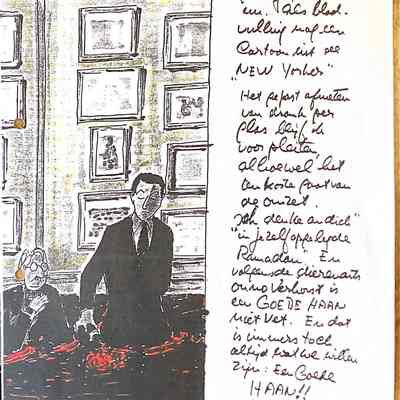 im. Tals blad-
vulling nog een
Cartoon uit de
"NEW Yorker"
"Het gepast afmeten
van drank per
glas blijf ik
voor pleiten,
alhoewel het
ten koste gaat van
de omzet.
"Ich denke an dich"
in je zelf opgelegde
Ramadan. En
volgens de dierenarts
onno Verhorst is
een GOEDE HAAN
niet vet. En dat
is immers toch
altijd wat we willen
zijn: Een Goede
HAAN!!